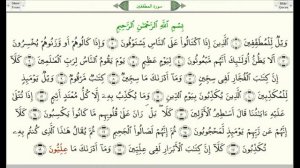 سورة المطففين
بِسْمِ ٱللَّهِ ٱلرَّحْمَٰنِ ٱلرَّحِيمِ
وَيْلٌ لِّلْمُطَفِّفِينَ ۝ ٱلَّذِينَ إِذَا ٱكْتَالُوا۟ عَلَى ٱلنَّاسِ يَسْتَوْفُونَ ۝ وَإِذَا كَالُوهُمْ أَو وَّزَنُوهُمْ يُخْسِرُونَ
۝ أَلَا يَظُنُّ أُو۟لَٰٓئِكَ أَنَّهُم مَّبْعُوثُونَ ۝ لِيَوْمٍ عَظِيمٍ ۝ يَوْمَ يَقُومُ ٱلنَّاسُ لِرَبِّ ٱلْعَٰلَمِينَ ۝ كَلَّآ
إِنَّ كِتَٰبَ ٱلْفُجَّارِ لَفِى سِجِّينٍ ۝ وَمَآ أَدْرَىٰكَ مَا سِجِّينٌ ۝ كِتَٰبٌ مَّرْقُومٌ ۝ وَيْلٌ يَوْمَئِذٍ
لِّلْمُكَذِّبِينَ ۝ ٱلَّذِينَ يُكَذِّبُونَ بِيَوْمِ ٱلدِّينِ ۝ وَمَا يُكَذِّبُ بِهِۦٓ إِلَّا كُلُّ مُعْتَدٍ أَثِيمٍ ۝ إِذَا تُتْلَىٰ عَلَيْهِ ءَايَٰتُنَا قَالَ
أَسَٰطِيرُ ٱلْأَوَّلِينَ ۝ كَلَّا ۖ بَلْ ۜ رَانَ عَلَىٰ قُلُوبِهِم مَّا كَانُوا۟ يَكْسِبُونَ ۝ كَلَّآ
إِنَّهُمْ عَن رَّبِّهِمْ يَوْمَئِذٍ لَّمَحْجُوبُونَ ۝ ثُمَّ إِنَّهُمْ لَصَالُوا۟ ٱلْجَحِيمِ ۝ ثُمَّ يُقَالُ هَٰذَا ٱلَّذِى كُنتُم بِهِۦ
تُكَذِّبُونَ ۝ كَلَّآ إِنَّ كِتَٰبَ ٱلْأَبْرَارِ لَفِى عِلِّيِّينَ ۝ وَمَآ أَدْرَىٰكَ مَا عِلِّيُّونَ